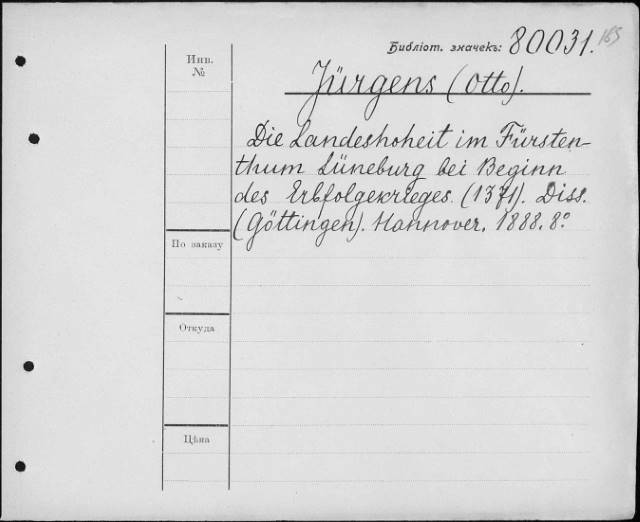 Библіот. значекъ: 80031. 165
Инв.
№
Jürgens (Otto).
Die Landeshoheit im Fürsten-
thum Lüneburg bei Beginn
des Erbfolgekrieges. (1371). Diss.
(Göttingen). Hannover. 1888. 8º
По заказу
Откуда
Цѣна